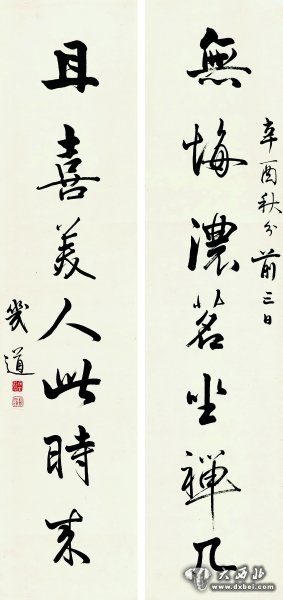 辛酉秋分前三日
無悔濃茗坐禪几
且喜美人此時来
幾道
大西北
www.dxbei.com